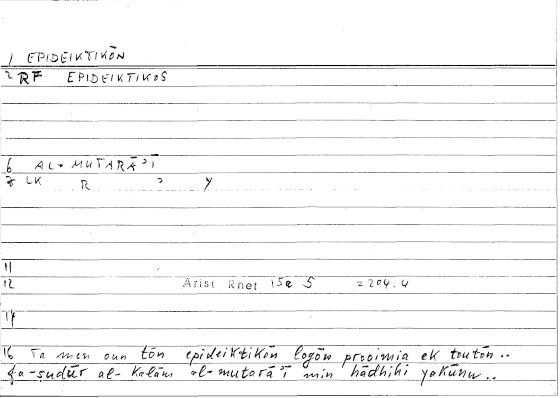 1 EPIDEIKTIKŌN
2 RF EPIDEIKTIKOS
6 AL-MUTARĀʾĪ
8 LK R ʾ Y
11
12 Arist Rhet 15a 5 = 204.4
14
16 Ta men oun tōn epideiktikōn logōn prooimia ek toutōn ..
fa-ṣudūr al-kalām al-mutarāʾī min hādhihi yakūnu ..